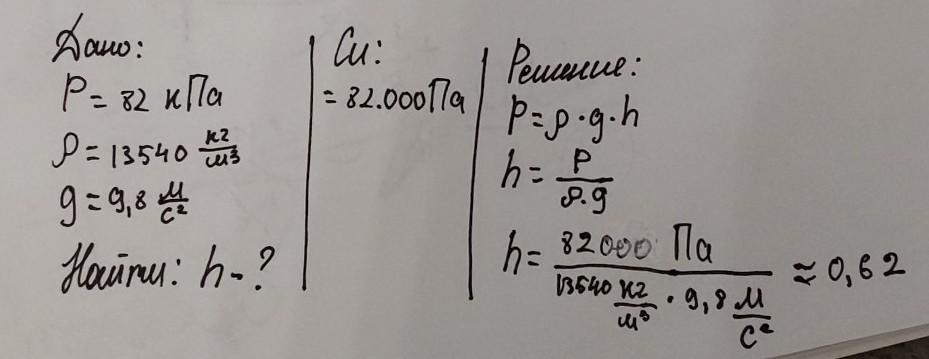 Дано:
P = 82 кПа
ρ = 13540 кг/м³
g = 9,8 м/с²
Найти: h - ?
Си:
= 82.000 Па
Решение:
P = ρ · g · h
h = P / ρ · g
h = 82000 Па / 13540 кг/м³ · 9,8 м/с² ≈ 0,62